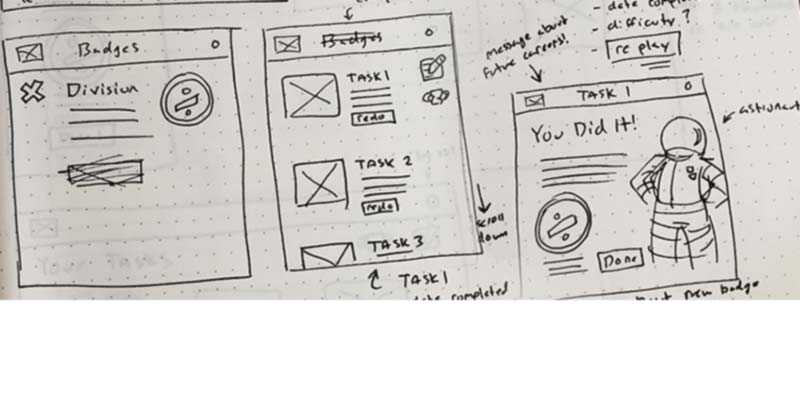 Badges
Division
Badges
TASK 1
redo
TASK 2
redo
TASK 3
scroll
down
TASK 1
completed
message about
future careers!
- difficulty?
- re play
TASK 1
You Did It!
Done
new badge